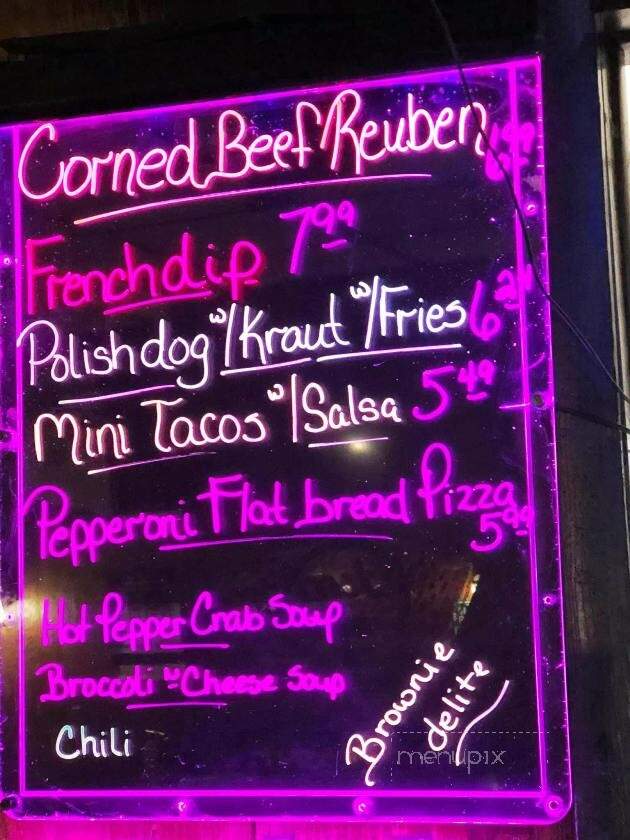 Corned Beef Reuben
French dip 7.99
Polish dog w/Kraut w/Fries
Mini Tacos w/Salsa 5.49
Pepperoni Flat bread Pizza
5.99
Hot Pepper Crab Soup
Broccoli w Cheese Soup
Chili
Brownie
delite
menupix